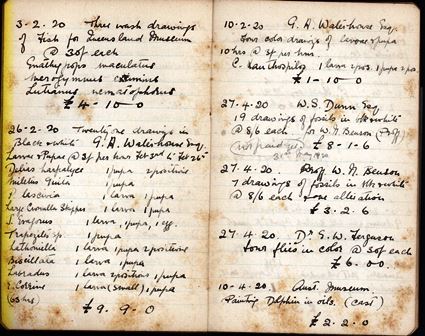 3-2-20 Three wash drawings
of Fish for Queensland Museum
@ 30/- each
maculatus
Lutianus nematophorus
£4-10-0
26-2-20 Twenty one drawings in
Black & white G. A. Waterhouse Esq.
Larvae & Pupae @ 3/- per hour Feb 3rd to Feb 26th
Delias harpalyce 1 pupa 2 positions
Miletus 1 pupa
P. 1 larva 1 pupa
Large Skipper 1 larva 1 pupa
1 larva, 1 pupa, 1 egg.
Trapezites sp 1 pupa
1 larva 1 pupa 2 positions
1 larva 1 pupa
Labradus 1 larva 2 positions 1 pupa
1 larva (small) 1 pupa
(63 hrs)
£9-9-0
10-2-20 G. A. Waterhouse Esq.
Four color drawings of larvae & pupa
10 hrs @ 3/- per hour.
1 larva 2 pos. 1 pupa 2 pos
£1-10-0
27-4-20 W. S. Dunn Esq
19 drawings of fossils in bk & white
@ 8/6 each for W. N. Benson (Prof)
(not paid yet) £8-1-6
27.4.20 Prof W. N. Benson
7 drawings of fossils in bk & white
@ 8/6 each one alteration
£3.2.6
27.4.20 Dr E. W. Ferguson
four flies in color @ 30/- each
£6.0.0
10-4-20 Aust. Museum.
Painting Dolphin in oils. (cast)
£2.2.0